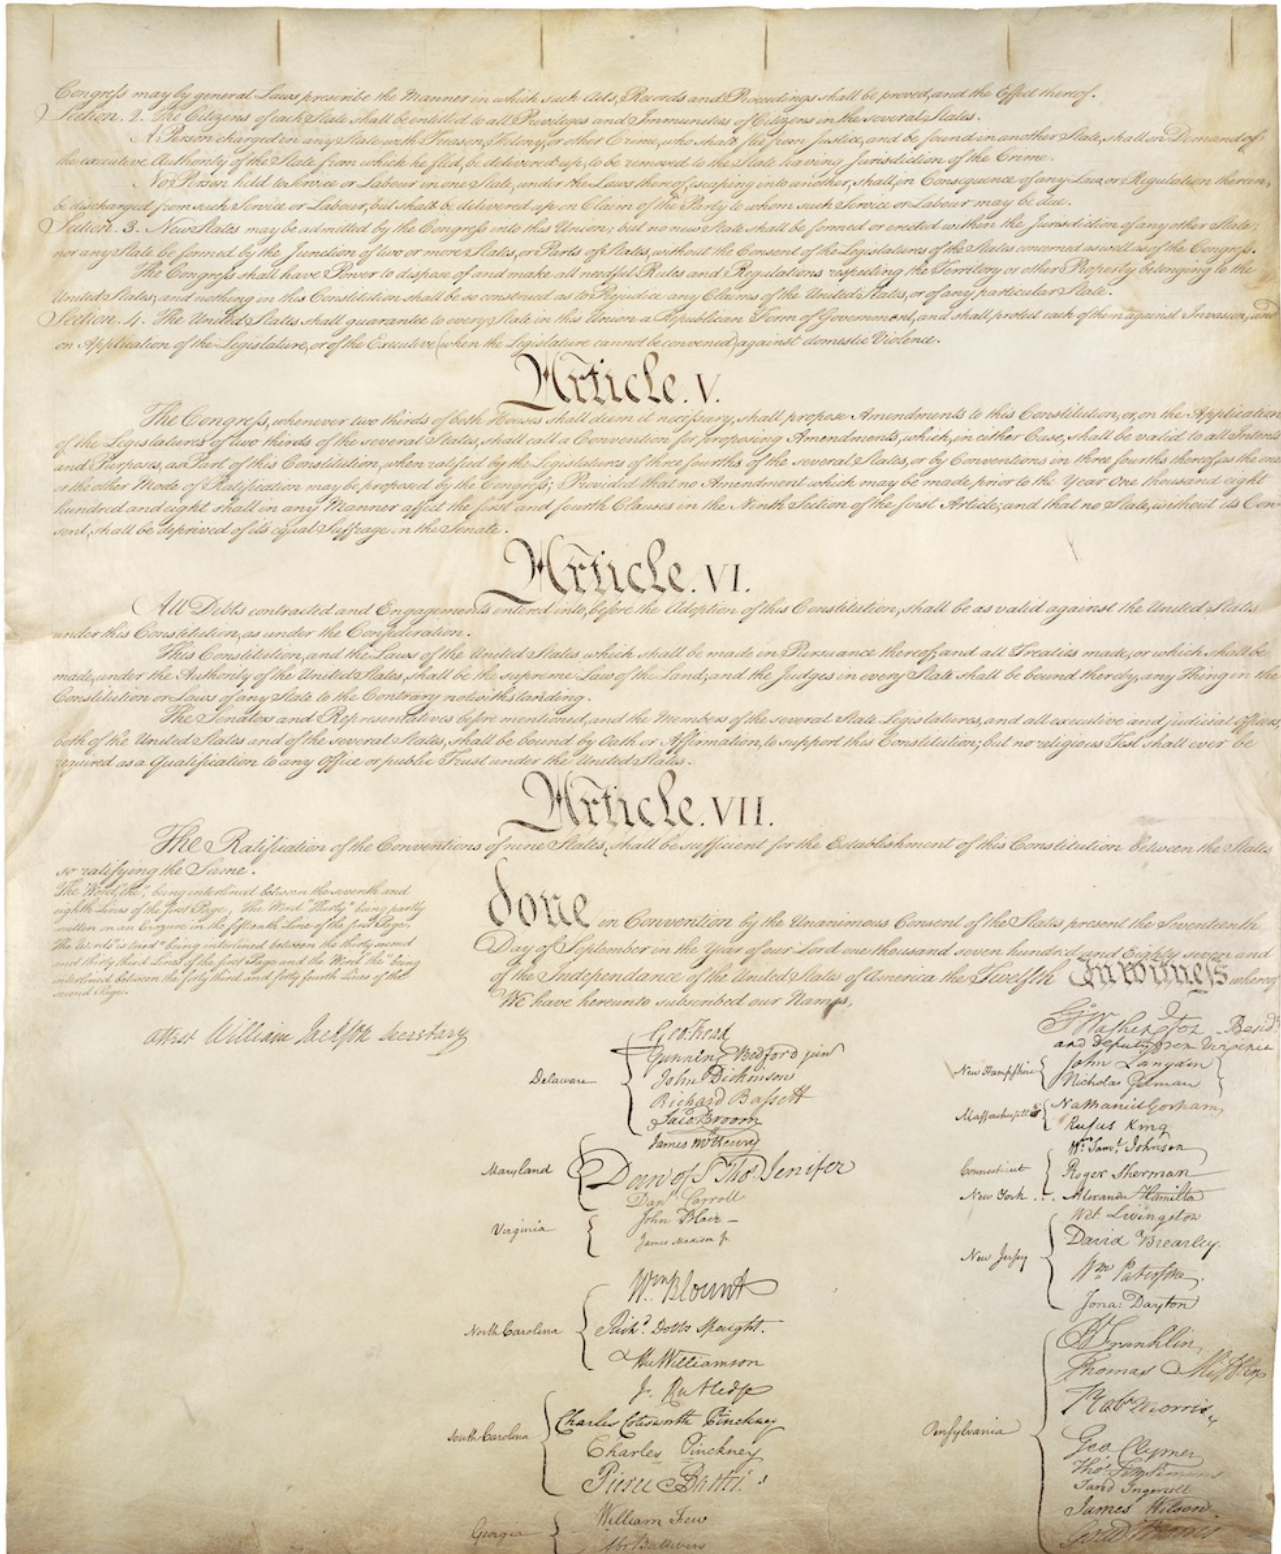 Congress may by general Laws prescribe the Manner in which such Acts, Records and Proceedings shall be proved, and the Effect thereof.
Section. 2. The Citizens of each State shall be entitled to all Privileges and Immunities of Citizens in the several States.
A Person charged in any State with Treason, Felony, or other Crime, who shall flee from Justice, and be found in another State, shall on Demand of
the executive Authority of the State from which he fled, be delivered up, to be removed to the State having Jurisdiction of the Crime.
No Person held to Service or Labour in one State, under the Laws thereof, escaping into another, shall, in Consequence of any Law or Regulation therein,
be discharged from such Service or Labour, but shall be delivered up on Claim of the Party to whom such Service or Labour may be due.
Section. 3. New States may be admitted by the Congress into this Union; but no new State shall be formed or erected within the Jurisdiction of any other State;
nor any State be formed by the Junction of two or more States, or Parts of States, without the Consent of the Legislatures of the States concerned as well as of the Congress.
The Congress shall have Power to dispose of and make all needful Rules and Regulations respecting the Territory or other Property belonging to the
United States; and nothing in this Constitution shall be so construed as to Prejudice any Claims of the United States, or of any particular State.
Section. 4. The United States shall guarantee to every State in this Union a Republican Form of Government, and shall protect each of them against Invasion; and
on Application of the Legislature, or of the Executive (when the Legislature cannot be convened) against domestic Violence.
Article. V.
The Congress, whenever two thirds of both Houses shall deem it necessary, shall propose Amendments to this Constitution, or, on the Application
of the Legislatures of two thirds of the several States, shall call a Convention for proposing Amendments, which, in either Case, shall be valid to all Intents
and Purposes, as Part of this Constitution, when ratified by the Legislatures of three fourths of the several States, or by Conventions in three fourths thereof, as the one
or the other Mode of Ratification may be proposed by the Congress; Provided that no Amendment which may be made prior to the Year One thousand eight
hundred and eight shall in any Manner affect the first and fourth Clauses in the Ninth Section of the first Article; and that no State, without its Con-
sent, shall be deprived of its equal Suffrage in the Senate.
Article. VI.
All Debts contracted and Engagements entered into, before the Adoption of this Constitution, shall be as valid against the United States
under this Constitution, as under the Confederation.
This Constitution, and the Laws of the United States which shall be made in Pursuance thereof; and all Treaties made, or which shall be
made, under the Authority of the United States, shall be the supreme Law of the Land; and the Judges in every State shall be bound thereby, any Thing in the
Constitution or Laws of any State to the Contrary notwithstanding.
The Senators and Representatives before mentioned, and the Members of the several State Legislatures, and all executive and judicial Officers,
both of the United States and of the several States, shall be bound by Oath or Affirmation, to support this Constitution; but no religious Test shall ever be
required as a Qualification to any Office or public Trust under the United States.
Article. VII.
The Ratification of the Conventions of nine States, shall be sufficient for the Establishment of this Constitution between the States
so ratifying the Same.
The Word, "the," being interlined between the seventh and
eighth Lines of the first Page, The Word "Thirty" being partly
written on an Erazure in the fifteenth Line of the first Page,
The Words "is tried" being interlined between the thirty second
and thirty third Lines of the first Page and the Word "the" being
interlined between the forty third and forty fourth Lines of the
second Page.
done in Convention by the Unanimous Consent of the States present the Seventeenth
Day of September in the Year of our Lord one thousand seven hundred and Eighty seven and
of the Independance of the United States of America the Twelfth In witness whereof
We have hereunto subscribed our Names,
Attest William Jackson Secretary
Delaware
Geo: Read
Gunning Bedford jun
John Dickinson
Richard Bassett
Jaco: Broom
Maryland
James McHenry
Dan of St Thos. Jenifer
Danl Carroll
Virginia
John Blair —
James Madison Jr.
North Carolina
Wm Blount
Richd. Dobbs Spaight.
Hu Williamson
South Carolina
J. Rutledge
Charles Cotesworth Pinckney
Charles Pinckney
Pierce Butler.
Georgia
William Few
Abr Baldwin
Go. Washington — Presidt.
and deputy from Virginia
New Hampshire
John Langdon
Nicholas Gilman
Massachusetts
Nathaniel Gorham
Rufus King
Connecticut
Wm. Saml. Johnson
Roger Sherman
New York . . .
Alexander Hamilton
New Jersey
Wil: Livingston
David Brearley.
Wm Paterson.
Jona: Dayton
Pensylvania
B Franklin
Thomas Mifflin
Robt Morris
Geo. Clymer
Thos. FitzSimons
Jared Ingersoll
James Wilson.
Gouv Morris